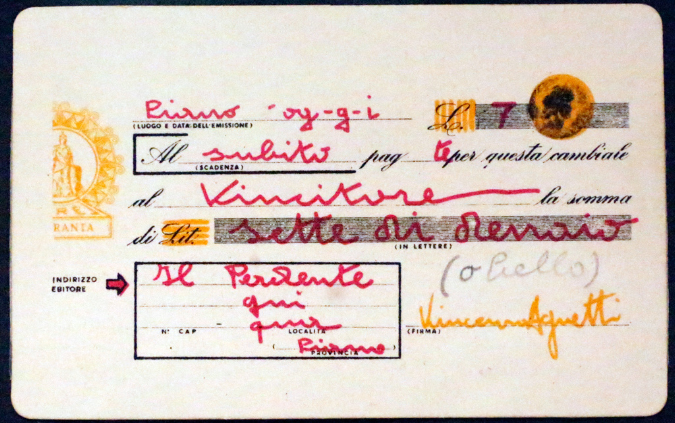 Piano og-g-i Lit. 7
(LUOGO E DATA DELL'EMISSIONE)
Al subito pag te per questa cambiale
(SCADENZA)
al Vincitore la somma
di Lit. sette di denaio
(IN LETTERE)
(o bello)
INDIRIZZO
EBITORE
Il Perdente
qui
qua
N° CAP LOCALITÀ
Piano
PROVINCIA
(FIRMA) Vincenzo Agnetti
RANTA